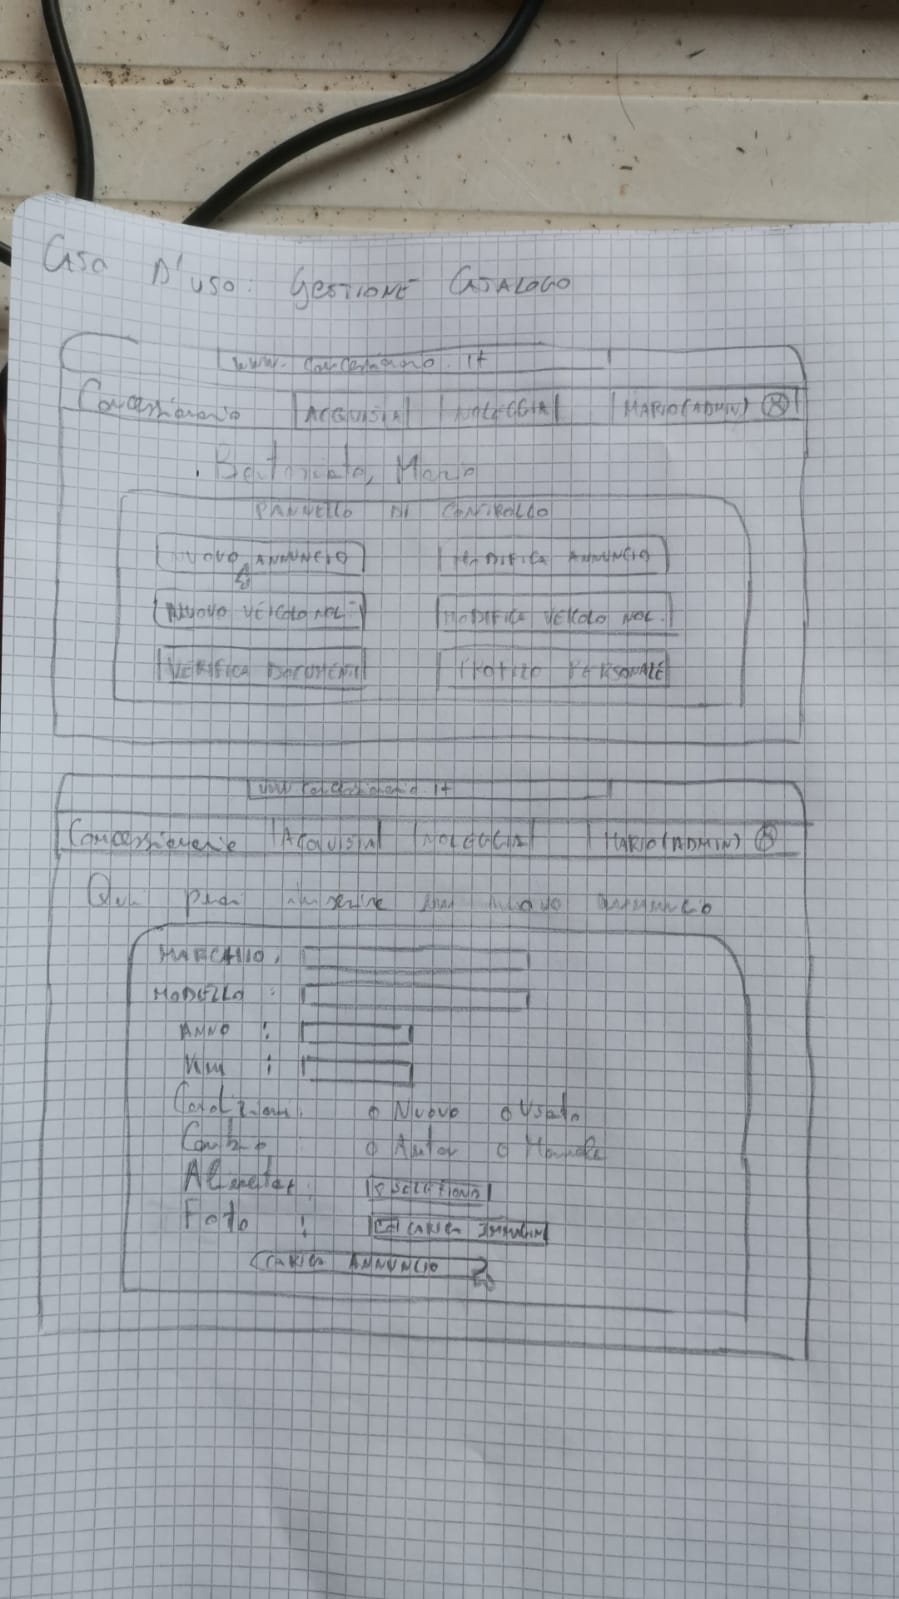 Caso D'uso: Gestione Catalogo
www.concessionario.it
Concessionario ACQUISTA NOLEGGIA MARIO (ADMIN)
Bentornato, Mario
PANNELLO DI CONTROLLO
NUOVO ANNUNCIO MODIFICA ANNUNCIO
NUOVO VEICOLO NOL. MODIFICA VEICOLO NOL.
VERIFICA DOCUMENTI PROFILO PERSONALE
www.concessionario.it
Concessionario ACQUISTA NOLEGGIA MARIO (ADMIN)
Qui puoi inserire un nuovo annuncio
MARCHIO:
MODELLO:
ANNO:
Km:
Condizioni: Nuovo Usato
Cambio: Autom Manuale
Alimentaz:
Foto: CARICA IMMAGINI
CARICA ANNUNCIO